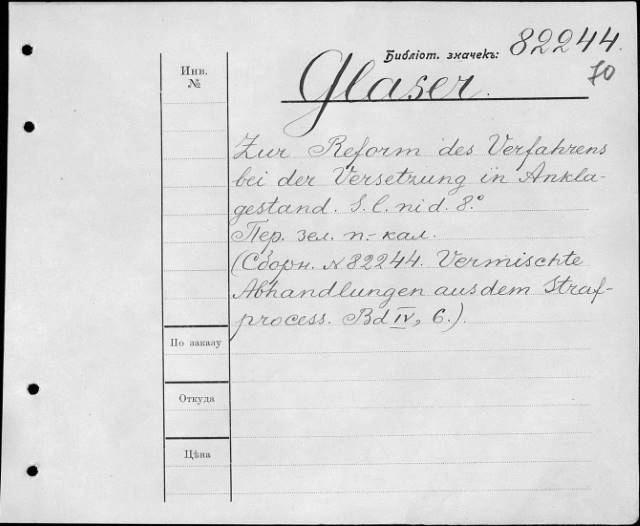 Библіот. значекъ: 82244.
70
Инв. №
Glaser.
Zur Reform des Verfahrens
bei der Versetzung in Ankla-
gestand. S. l. ni d. 8.°
Пер. зел. п.-кал.
(Сборн. № 82244. Vermischte
Abhandlungen aus dem Straf-
process. Bd IV, 6.).
По заказу
Откуда
Цѣна